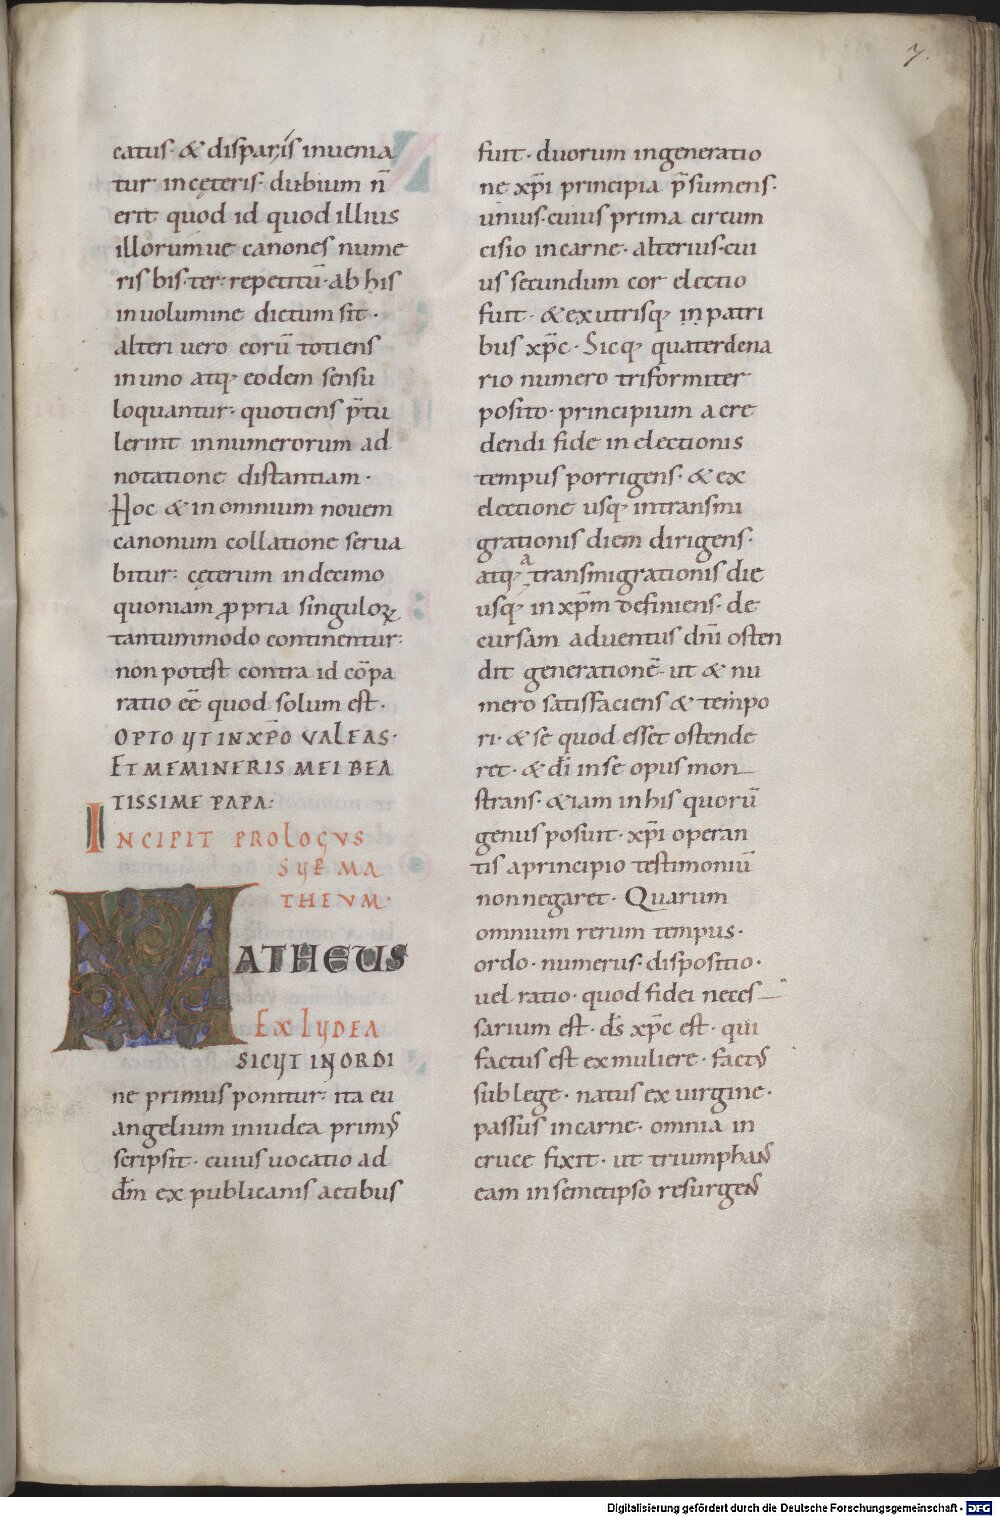 7.
catus· & disparis inuenia
tur· in cęteris· dubium n̄
erit quod id quod illius
illorumue canones nume
ris bis·ter· repetitū· ab his
in uolumine dictum sit·
alteri uero eorū totiens
in uno atq; eodem sensu
loquantur· quotiens p̄tu
lerint in numerorum ad
notatione distantiam·
Hoc & in omnium nouem
canonum collatione serua
bitur· cęterum in decimo
quoniam ꝓpria singuloꝝ
tantummodo continentur·
non potest contra id cōpa
ratio eē quod solum est·
OPTO UT IN XP̄O VALEAS·
ET MEMINERIS MEI BEA
TISSIME PAPA·
INCIPIT PROLOGVS
SUP̄ MA
THEVM·
MATHEUS
EX IUDEA
SICUT IN ORDI
ne primus ponitur· ita eu
angelium in iudea primꝰ
scripsit· cuius uocatio ad
dm̄ ex publicanis actibus
fuit· duorum in generatio
ne xp̄i principia p̄sumens·
unius· cuius prima circum
cisio in carne· alterius· cui
us secundum cor electio
fuit· & ex utrisq; in patri
bus xp̄c· Sicq; quaterdena
rio numero triformiter
posito· principium a cre
dendi fide in electionis
tempus porrigens· & ex
electione usq; in transmi
grationis diem dirigens·
atq; a transmigrationis die
usq; in xp̄m definiens· de
cursam aduentus dn̄i osten
dit generationē· ut & nu
mero satisfaciens & tempo
ri· & se quod esset ostende
ret· & dī in se opus mon
strans· & iam in his quorū
genus posuit· xp̄i operan
tis a principio testimoniū
non negaret· Quarum
omnium rerum tempus·
ordo· numerus· dispositio·
uel ratio· quod fidei neces
sarium est· ds̄ xp̄c est· qui
factus est ex muliere· factꝰ
sub lege· natus ex uirgine·
passus in carne· omnia in
cruce fixit· ut triumphans
eam in semetipso resurgens
Digitalisierung gefördert durch die Deutsche Forschungsgemeinschaft - DFG